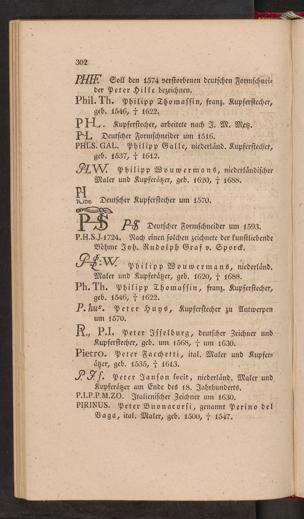 302
PHIF. Soll den 1574 verstorbenen deutschen Formschnei-
der Peter Hille bezeichnen.
Phil. Th. Philipp Thomassin, franz. Kupferstecher,
geb. 1546, † 1622.
PHL. Kupferstecher, arbeitete nach J. M. Metz.
PL Deutscher Formschneider um 1516.
PHLS. GAL. Philipp Galle, niederländ. Kupferstecher,
geb. 1537, † 1612.
PH.W. Philipp Wouwermans, niederländischer
Maler und Kupferätzer, geb. 1620, † 1688.
PH
Deutscher Kupferstecher um 1570.
PS PS Deutscher Formschneider um 1593.
P.H.S.J.1724. Nach einen solchen zeichnete der kunstliebende
Böhme Joh. Rudolph Graf v. Sporck.
PS:W. Philipp Wouwermans, niederländ.
Maler und Kupferätzer, geb. 1620, † 1688.
Ph. Th. Philipp Thomassin, franz. Kupferstecher,
geb. 1546, † 1622.
P. hus. Peter Huys, Kupferstecher zu Antwerpen
um 1570.
R., P.I. Peter Isselburg, deutscher Zeichner und
Kupferstecher, geb. um 1568, † um 1630.
Pietro. Peter Facchetti, ital. Maler und Kupfer-
ätzer, geb. 1535, † 1613.
P. J. f. Peter Janson fecit, niederländ. Maler und
Kupferätzer am Ende des 18. Jahrhunderts.
P.I.P.P.M.ZO. Italienischer Zeichner um 1630.
PIRINUS. Peter Buonacorsi, genannt Perino del
Vaga, ital. Maler, geb. 1500, † 1547.